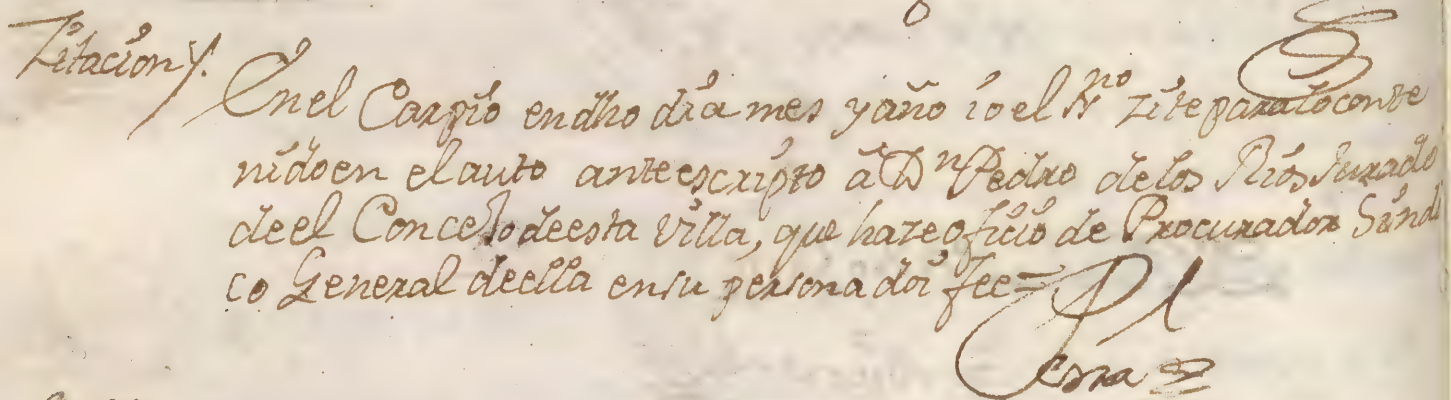 Zitacion
En el Carpio en dho dia mes y año io el ss.no zite para lo conte
nido en el auto ante escripto â Dn Pedro de los Rios Jurado
de el Concejo de esta Villa, que haze oficio de Procurador Sindi
co General de ella en su persona doi fee=